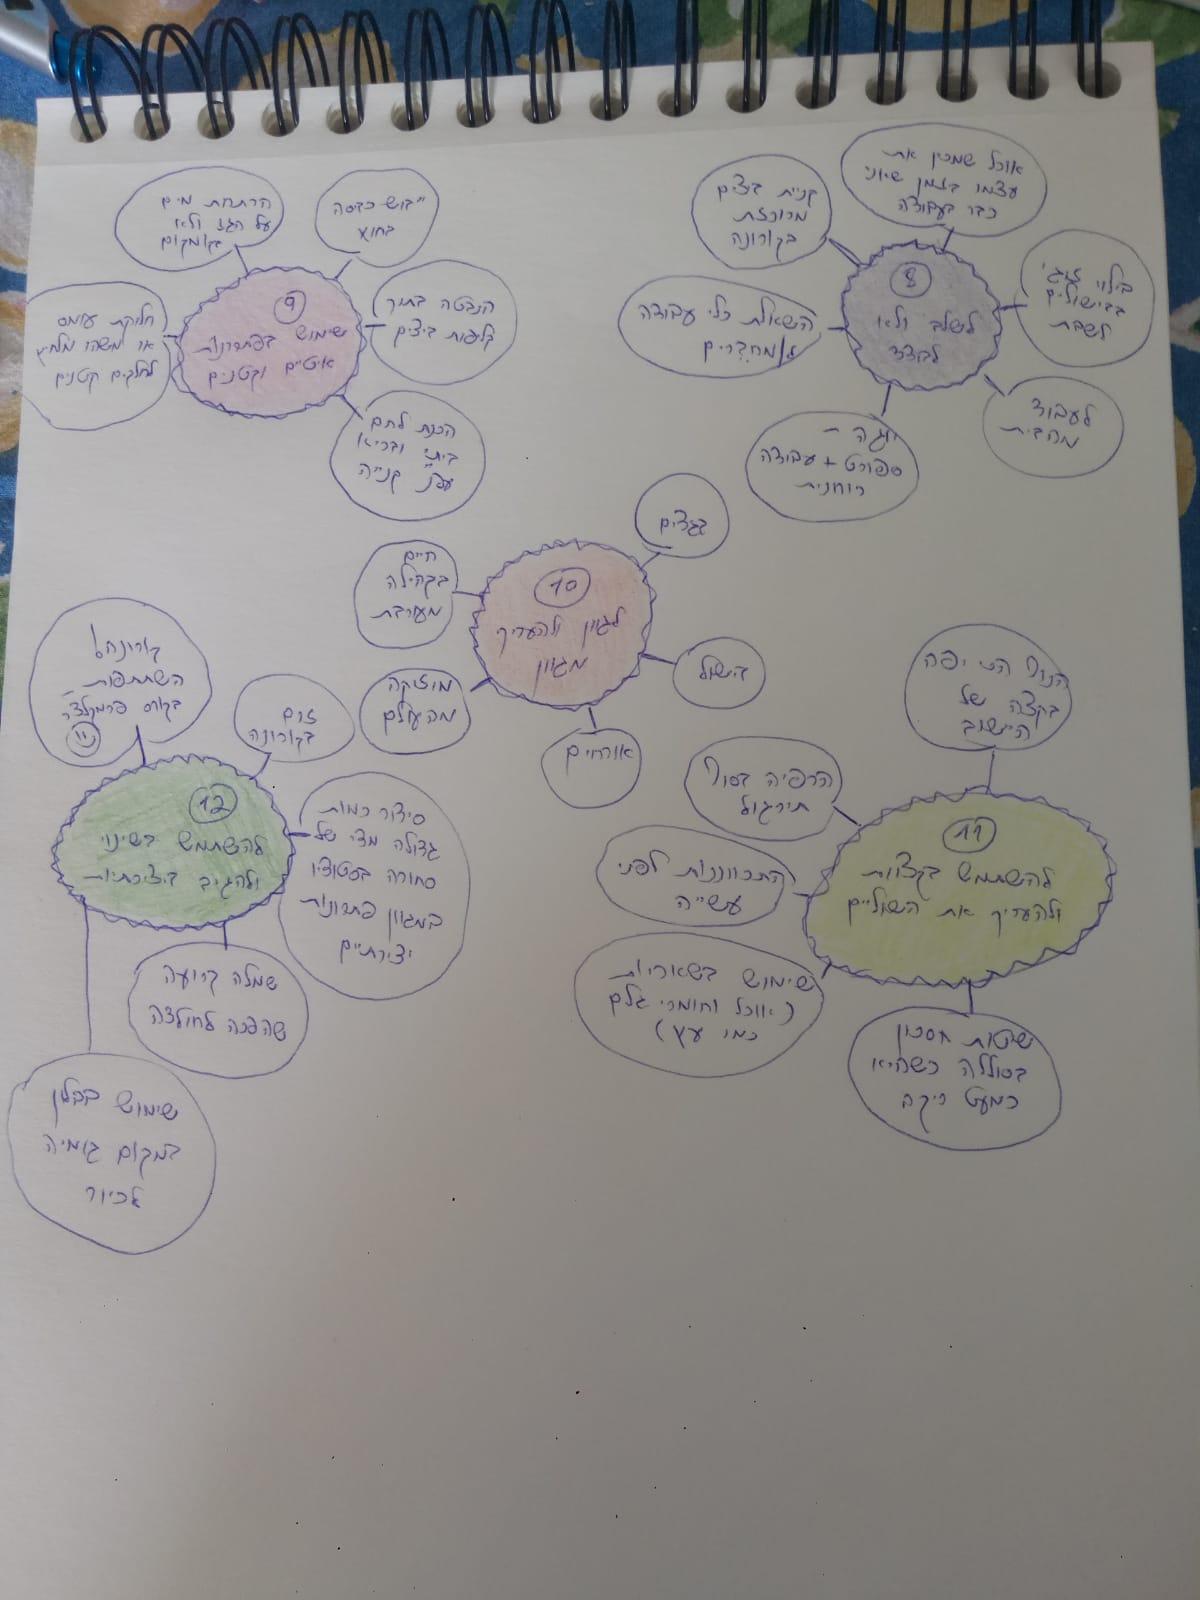 8
לשלב ולא
לבודד
קניית ביצים
מרוכזת
בקורונה
אוכל שמכין את
עצמו בזמן שאני
כבר בעבודה
בילוי זוגי
בבישולים
לשבת
לעבוד
מהבית
יוגה -
ספורט + עבודה
רוחנית
השאלת כלי עבודה
מחברים
9
שימוש בפתרונות
איטיים וקטנים
הרתחת מים
על הגז ולא
בקומקום
ייבוש כבסה
בחוץ
הנבטה בתוך
קליפות ביצים
הכנת לחם
ביתי ובריא
ע״פ קנייה
חליקת עומס
או משהו מלחיץ
לחלקים קטנים
10
לגוון ולהעריך
מגוון
בגדים
בישול
אורחים
מוזיקה
מהעולם
חיים
בקהילה
מעורבת
11
להשתמש בקצוות
ולהעריך את השוליים
הנוף הכי יפה
בקצה של
הישוב
הרפיה בסוף
תירגול
התכווננות לפני
עשייה
שימוש בשאריות
(אוכל וחומרי גלם
כמו עץ)
שיטות חסכון
בסוללה כשהיא
כמעט ריקה
12
להשתמש בשינוי
ולהגיב ביצירתיות
קורונה!
השתתפות
בקורס פרמקלצ׳ר
זום
בקורונה
סידור כמות
גדולה מדי של
סחורה בסטודיו
במגוון פתרונות
יצירתיים
שמלה קרועה
שהפכה לחולצה
שימוש בבלון
במקום גומיה
לכיור